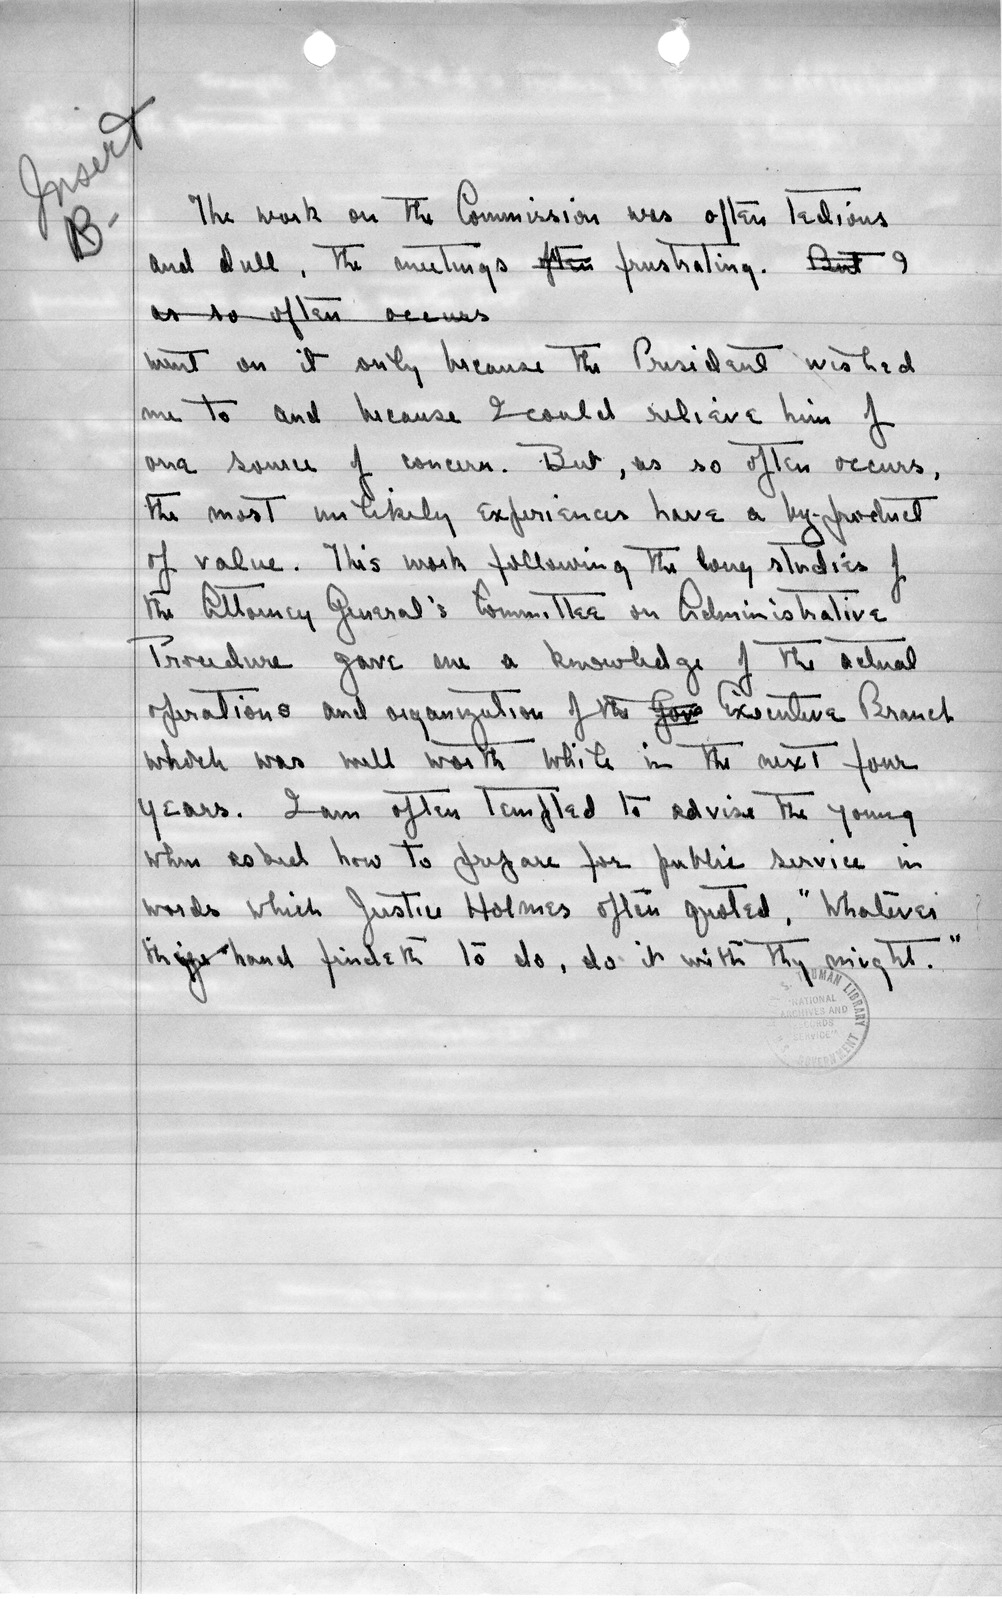 Insert
B-
The work on the Commission was often tedious
and dull, the meetings often frustrating. But I
as so often occurs
went on it only because the President wished
me to and because I could relieve him of
one source of concern. But, as so often occurs,
the most unlikely experiences have a by-product
of value. This work following the long studies of
the Attorney General's Committee on Administrative
Procedure gave me a knowledge of the actual
operations and organization of the Gov Executive Branch
which was well worth while in the next four
years. I am often tempted to advise the young
when asked how to prepare for public service in
words which Justice Holmes often quoted, "Whatever
thy hand findeth to do, do it with thy might."
S. TRUMAN LIBRARY
"NATIONAL
ARCHIVES AND
RECORDS
SERVICE"
GOVERNMENT